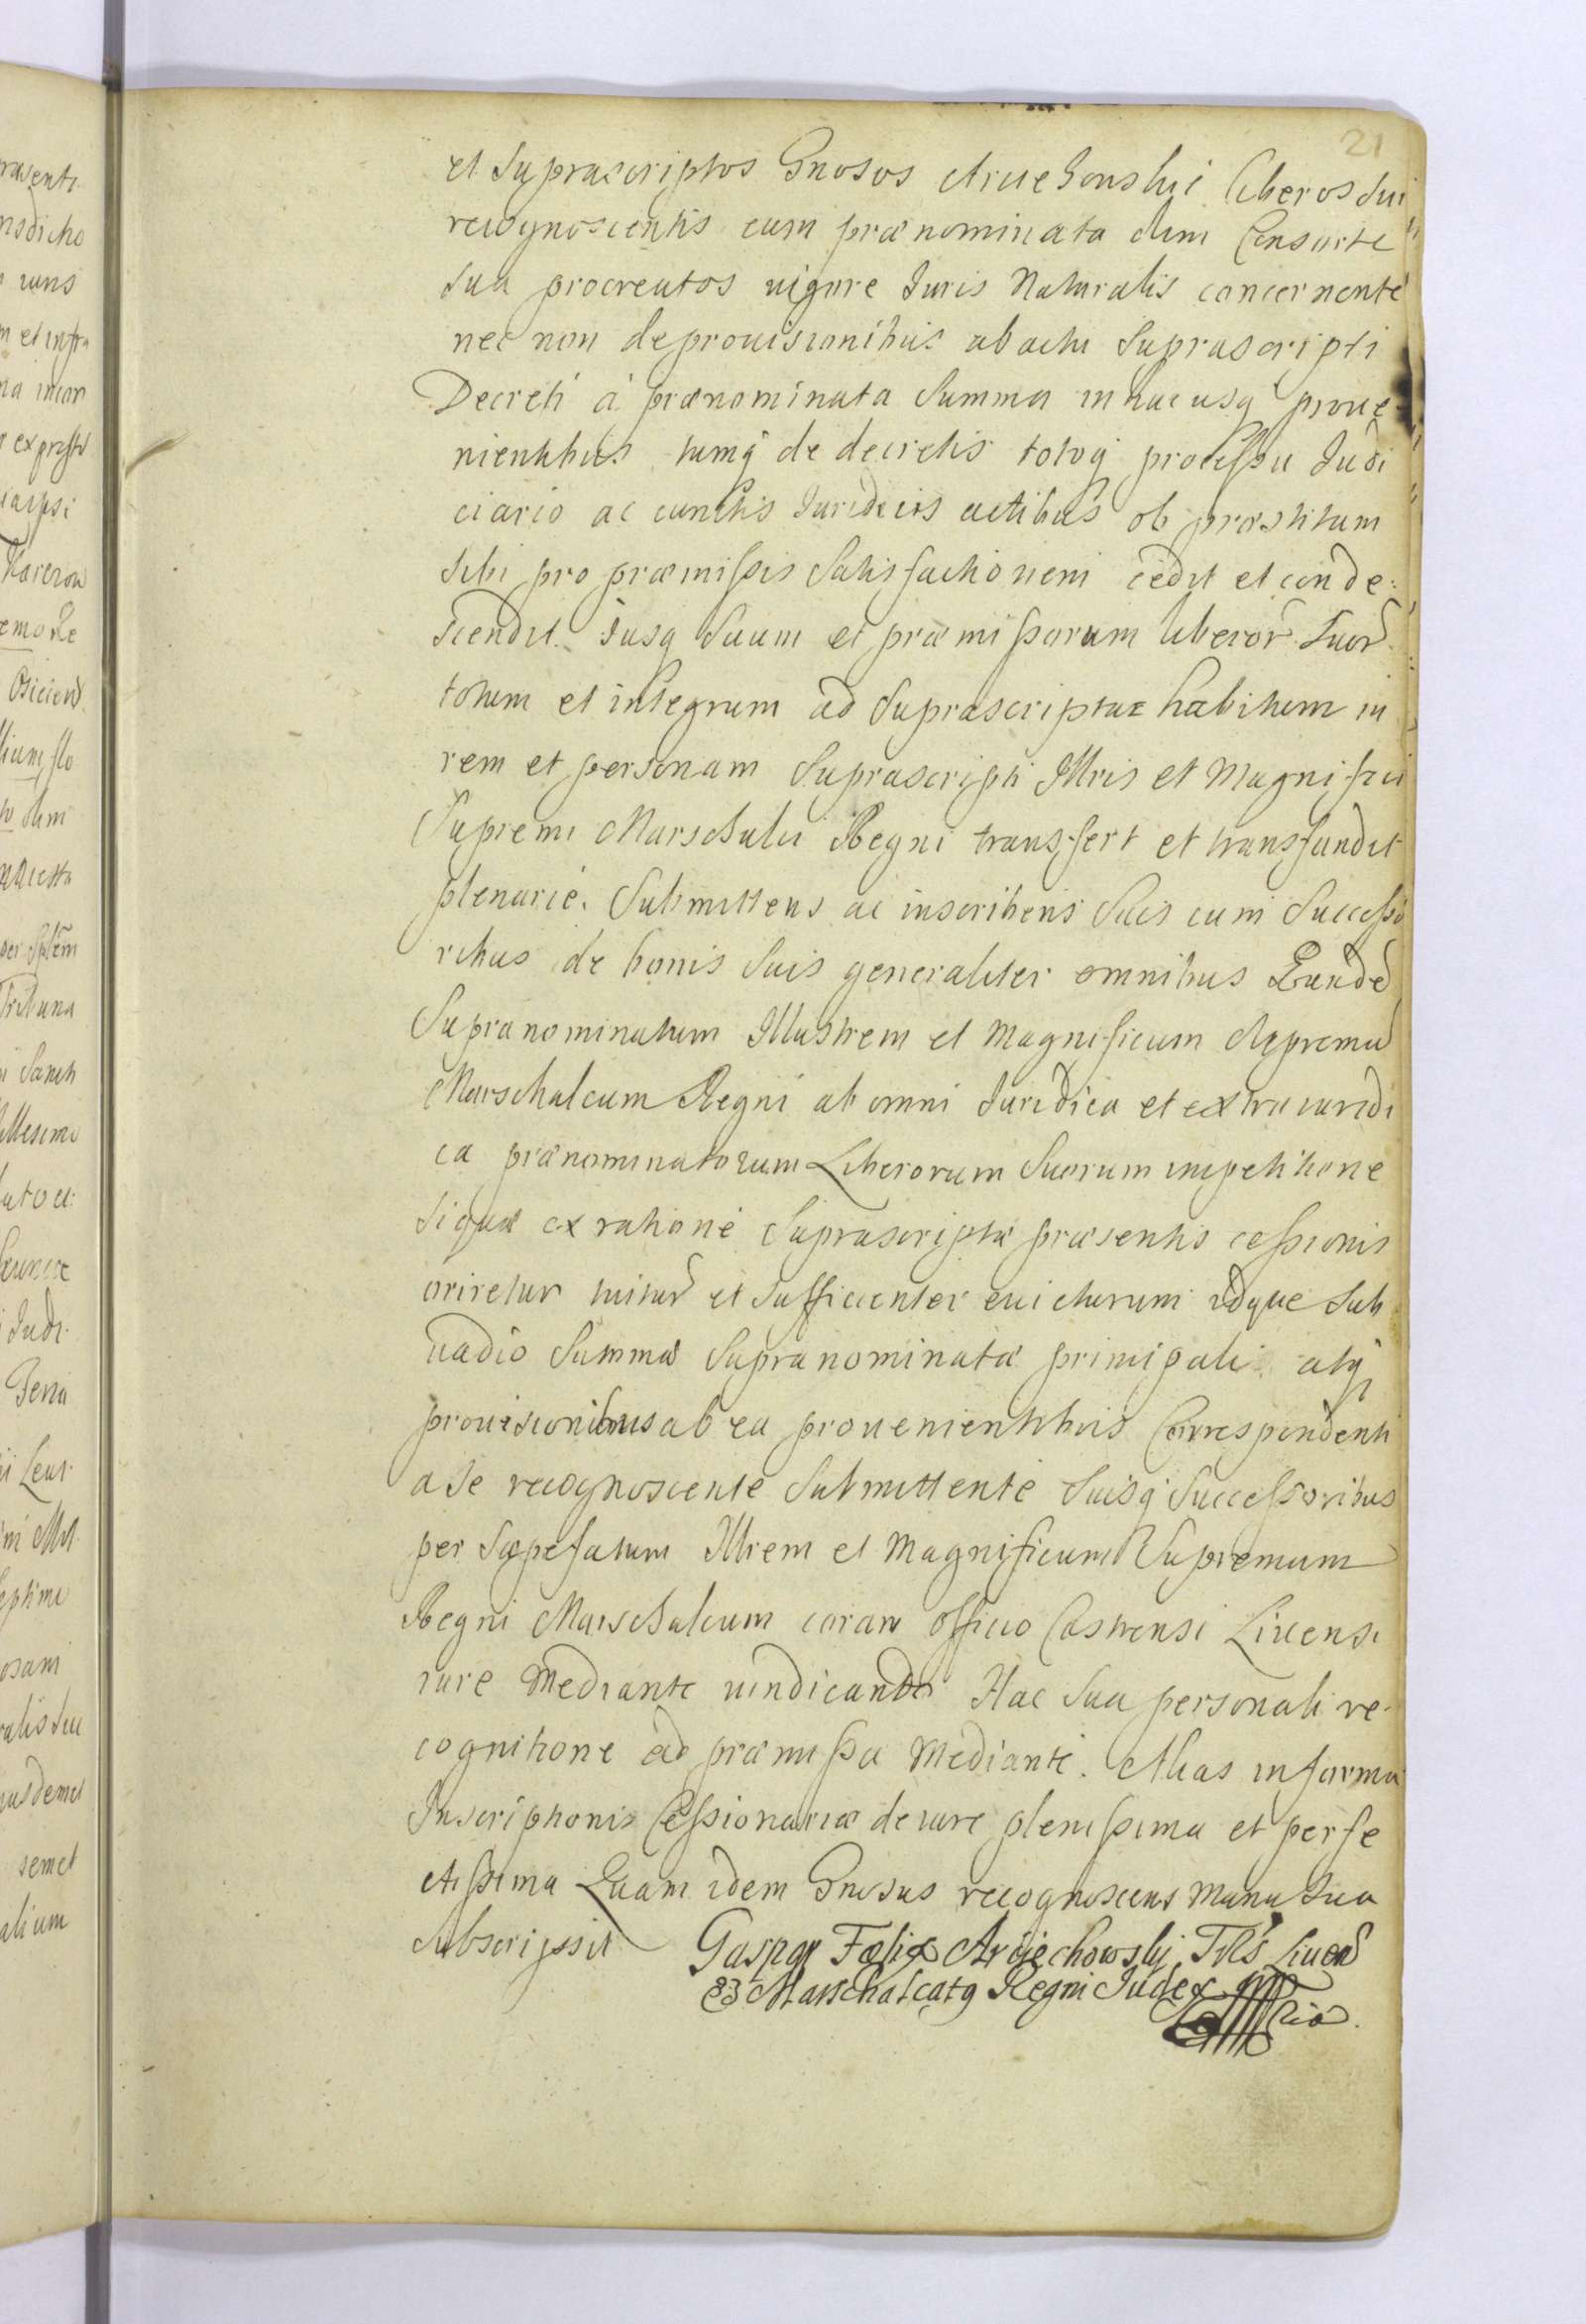 21
et Suprascriptos Gnosos Arciechowski liberos Sui
recognoscentis cum prænominata olim Consorte
Sua procreatos uigore Iuris Naturalis concernente
nec non de prouisionibus ab actu Suprascripti
Decreti á prænominata Summa in hucusq proue
nientibus tumq de decretis totoq processu Iudi
ciario ac cunctis Iuridicis actibus ob præstitam
Sibi pro præmissis Satisfactionem cedit et conde:
scendit. iusq Suum et præmissorum liberor Suor
totum et integrum ad Suprascripta habitum in
rem et personam Suprascripti Illris et Magnifici
Supremi Marschalci Regni transfert et transfundit
plenarié. Submittens ac inscribens Suis cum Successo
ribus de bonis Suis generaliter omnibus Eundē
Supranominatum Illustrem et Magnificum Supremū
Marschalcum Regni ab omni Iuridica et extraiuridi
ca prænominatorum Liberorum Suorum impetitione
Siquæ ex ratione Suprascriptæ præsentis cessionis
oriretur tuiturū et Sufficienter euicturum idque Sub
uadio Summæ Supranominatæ principali atq
prouisionibus ab ea prouenientibus Correspondenti
a Se recognoscente Submittente Suisq Successoribus
per Sæpefatum Illrem et Magnificum Supremum
Regni Marschalcum coram Officio Castrensi Liuensi
iure Mediante uindicando Hac Sua personali re-
cognitione ad præmissa Mediante. Alias in forma
Inscriptionis Cessionariæ de iure plenissima et perfe
ctissima Quam idem Gnosus recognoscens Manu Sua
Subscripsit Gaspar Fælix Arciechowskj Tr̃s Liueñ
et Marschalcatq Regni Iudex mp
ria.